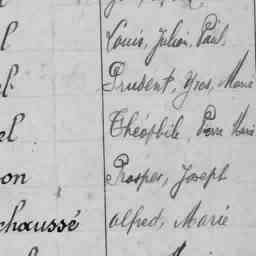 l Louis, Julien, Paul,
l. Prudent, Yves, Marie
el Théophile, Pierre Marie
on Prosper, Joseph
chaussé Alfred, Marie